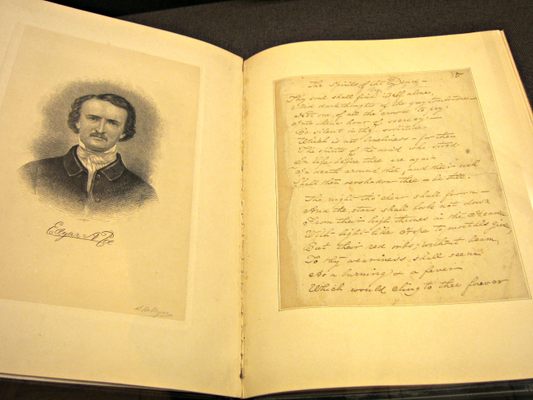 Edgar A Poe
The Spirits of the Dead —
Thy soul shall find itself alone,
'Mid dark thoughts of the gray tombstone —
Not one, of all the crowd, to pry
Into thine hour of secrecy: —
Be silent in thy solitude
Which is not loneliness — for then
The spirits of the dead who stood
In life before thee are again
In death around thee, and their will
Shall then overshadow thee — be still:
The night, tho' clear, shall frown —
And the stars shall look not down
From their high thrones in the Heaven
With light like Hope to mortals giv'n,
But their red orbs, without beam,
To thy weariness shall seem
As a burning & a fever
Which would cling to thee forever